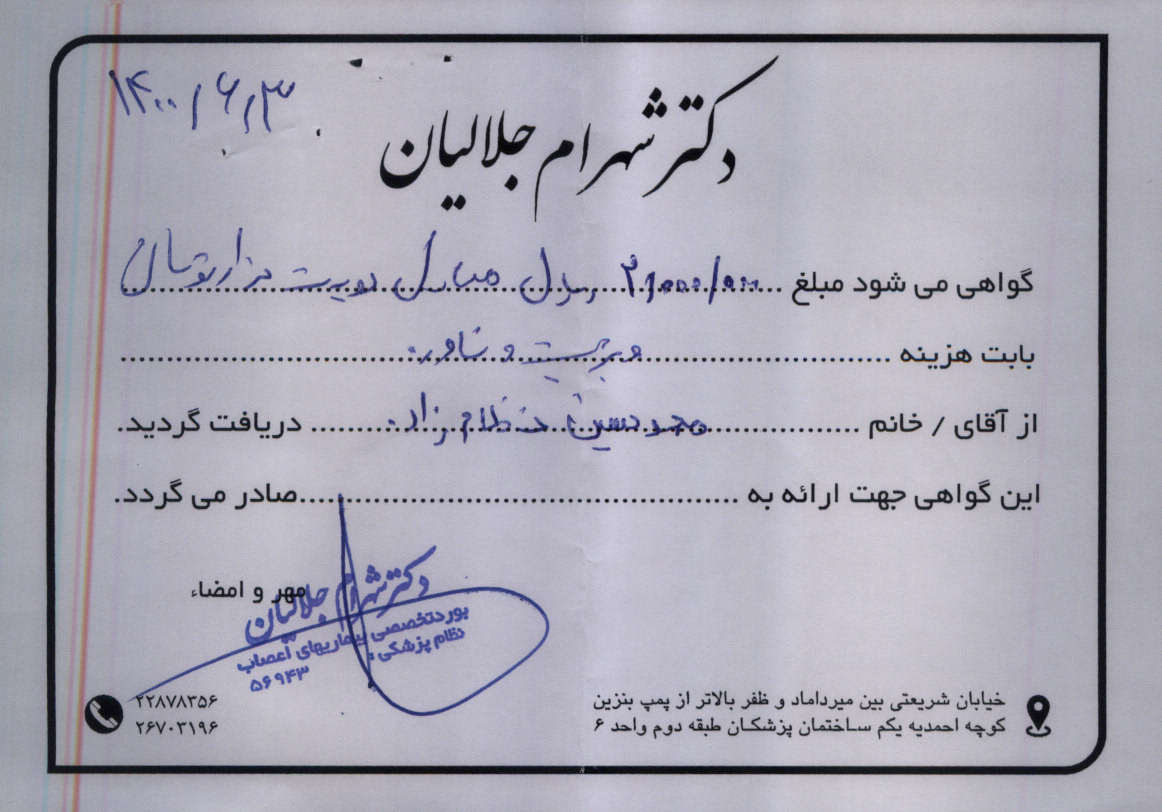 ۱۴۰۰/۶/۳
دکتر شهرام جلالیان
گواهی می شود مبلغ ۲/۰۰۰/۰۰۰ ریال معادل دویست هزار تومان
بابت هزینه ویزیت و مشاوره
از آقای / خانم محمدحسین نظام زاده دریافت گردید.
این گواهی جهت ارائه به صادر می گردد.
مهر و امضاء
دکتر شهرام جلالیان
بورد تخصصی بیماریهای اعصاب
نظام پزشکی: ۵۶۹۴۳
خیابان شریعتی بین میرداماد و ظفر بالاتر از پمپ بنزین
کوچه احمدیه یکم ساختمان پزشکان طبقه دوم واحد ۶
۲۲۸۷۸۳۵۶
۲۶۷۰۳۱۹۶